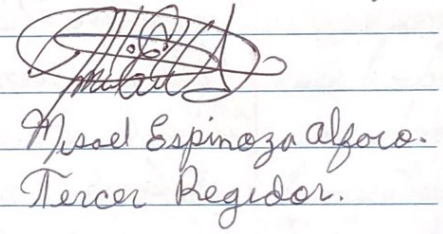 Misael Espinoza Alfaro.
Tercer Regidor.